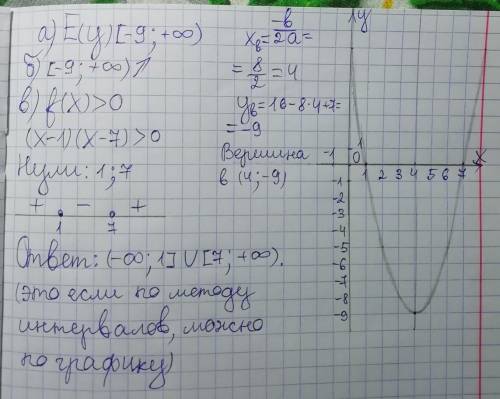 а) E(y) [-9; +∞)
б) [-9; +∞) ↗
в) f(x)>0
(x-1)(x-7)>0
Нули: 1; 7
+ - +
1 7
Ответ: (-∞; 1] ∪ [7; +∞).
(это если по методу
интервалов, можно
по графику)
xв = -в/2a =
= 8/2 = 4
yв = 16-8·4+7=
= -9
Вершина
в (4; -9)
y
x
1
-1 0 1 2 3 4 5 6 7
-1
-2
-3
-4
-5
-6
-7
-8
-9